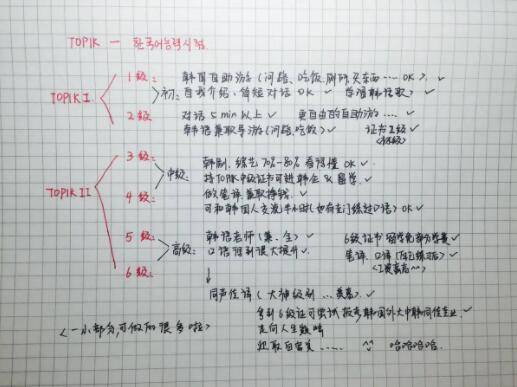 TOPIK — 한국어능력시험
TOPIK I
1级： 韩国自助游（问路、吃饭、刷房、买东西…… OK） ✓
初： 自我介绍、简短对话 OK ✓ 学唱韩语歌 ✓
2级 对话 5 min 以上 ✓ 更自由的自助游…… ✓
韩语兼职导游（问路、吃饭） ✓ 证书2级 ✓
<初级>
TOPIK II
3级： 韩剧、综艺 70%-80% 看得懂 OK ✓
中级： 持TOPIK中级证书可进韩企 & 留学 ✓
4级： 做笔译兼职挣钱 ✓
可和韩国人交流半小时（也有专门练过口语）OK ✓
5级： 韩语老师（兼、全） ✓ 6级证书 留学免部分学费 ✓
高级： 口语得到很大提升 ✓ 笔译、口译
<工资高
6级：
↓
同声传译（大神级别 ……） ✓
拿到6级证可尝试报考韩国外大中韩同传专业 ✓
走向人生巅峰
^^ 哈哈哈哈.
<一小部分，可做的很多啦>